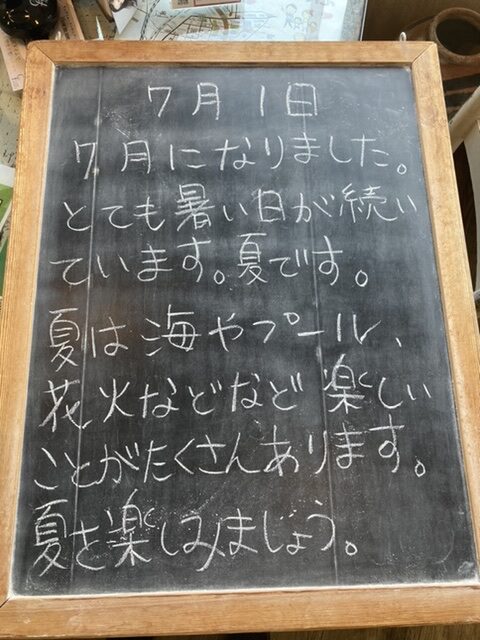 7月1日
7月になりました。
とても暑い日が続い
ています。夏です。
夏は海やプール、
花火などなど楽しい
ことがたくさんあります。
夏を楽しみましょう。